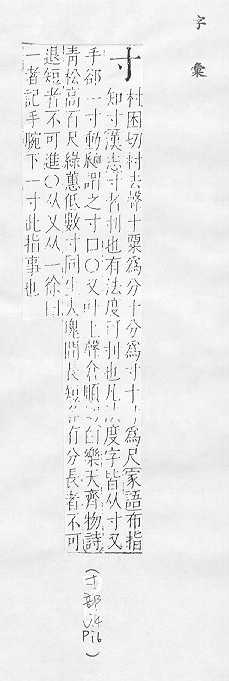 字彙
寸
村困切村去聲十粟爲分十分爲寸十寸爲尺家語布指
知寸漢志寸者忖也有法度可忖也凡法度字皆从寸又
手卻一寸動脉謂之寸口○又叶上聲倉順切白樂天齊物詩
青松高百尺綠蕙低數寸同生大塊間長短各有分長者不可
退短者不可進○从又从一徐曰
一者記手腕下一寸此指事也
(寸部
P16)